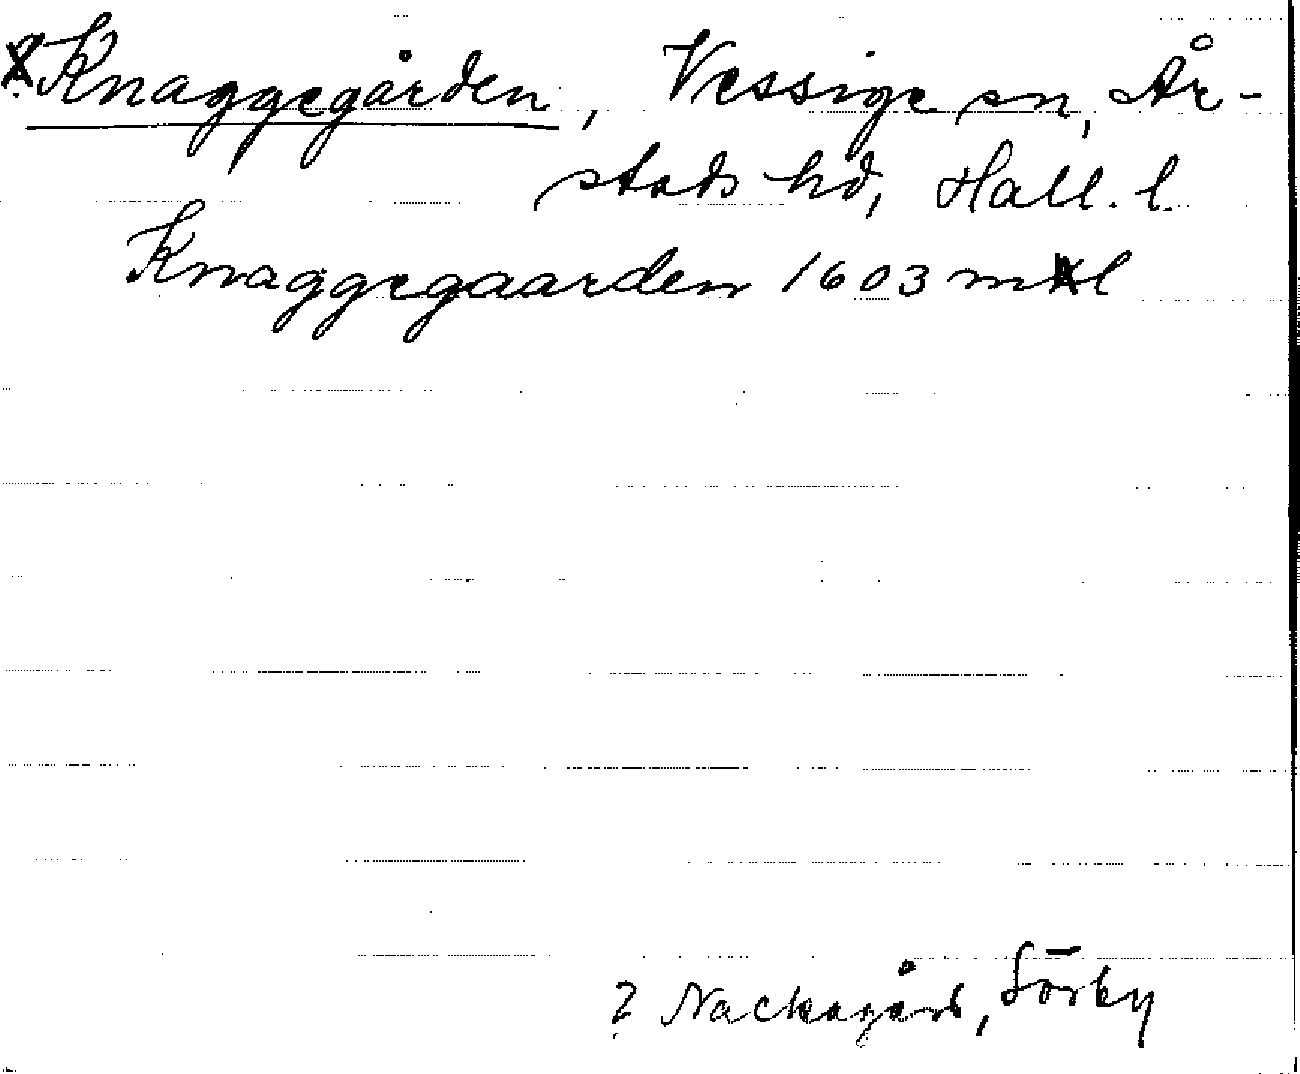 Knaggegården, Vessige sn, År-
stads hd, Hall. l.
Knaggegaarden 1603 mtl
? Nackagård, Sörby